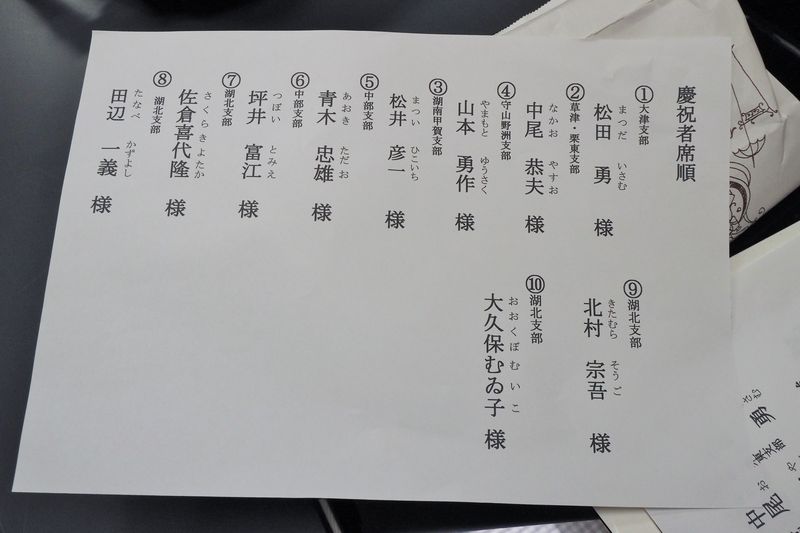 慶祝者席順
①大津支部
まつだ いさむ
松田 勇 様
②草津・栗東支部
なかお やすお
中尾 恭夫 様
④守山野洲支部
やまもと ゆうさく
山本 勇作 様
③湖南甲賀支部
まつい ひこいち
松井 彦一 様
⑤中部支部
あおき ただお
青木 忠雄 様
⑥中部支部
つぼい とみえ
坪井 富江 様
⑦湖北支部
さくらきよたか
佐倉喜代隆 様
⑧湖北支部
たなべ かずよし
田辺 一義 様
⑨湖北支部
きたむら そうご
北村 宗吾 様
⑩湖北支部
おおくぼむいこ
大久保むゐ子 様
さむ
勇
東支部
お や
中尾